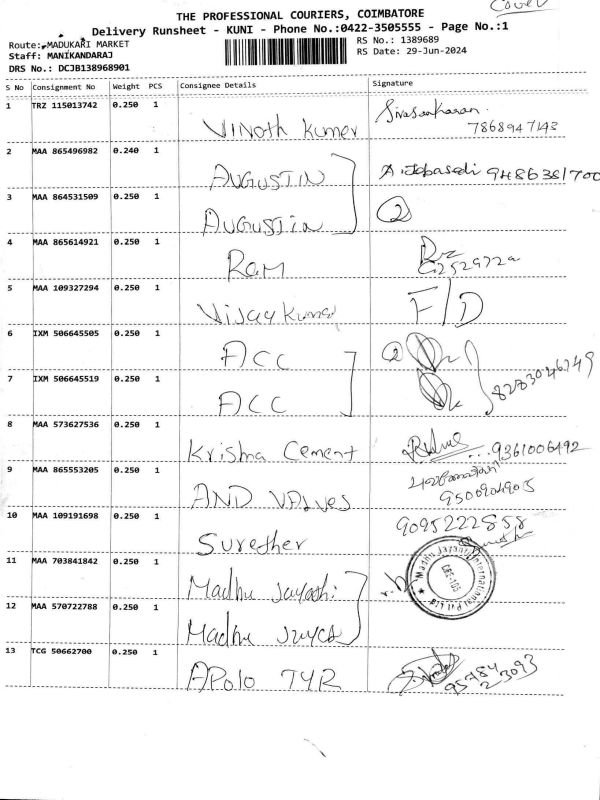 Cover
THE PROFESSIONAL COURIERS, COIMBATORE
Delivery Runsheet - KUNI - Phone No.:0422-3505555 - Page No.:1
Route: MADUKARI MARKET
RS No.: 1389689
Staff: MANIKANDARAJ
RS Date: 29-Jun-2024
DRS No.: DCJB138968901
S No Consignment No Weight PCS Consignee Details Signature
1 TRZ 115013742 0.250 1 Vinoth Kumer Sivasankaran.
7868947143
2 MAA 865496982 0.240 1 AUGUSTIN
3 MAA 864531509 0.250 1 AUGUSTIN 2
4 MAA 865614921 0.250 1 RAM
5 MAA 109327294 0.250 1 Vijay Kumar F/D
6 IXM 506645505 0.250 1 ACC 2
7 IXM 506645519 0.250 1 ACC
8 MAA 573627536 0.250 1 Krishna Cement 9361006492
9 MAA 865553205 0.250 1 AND VALVES
10 MAA 109191698 0.250 1 Surether 9095222858
11 MAA 703841842 0.250 1 Madhu
12 MAA 570722788 0.250 1 Madhu
13 TCG 50662700 0.250 1 APolo TYR
95784
23093
Madhu Jayanthi International Pvt Ltd